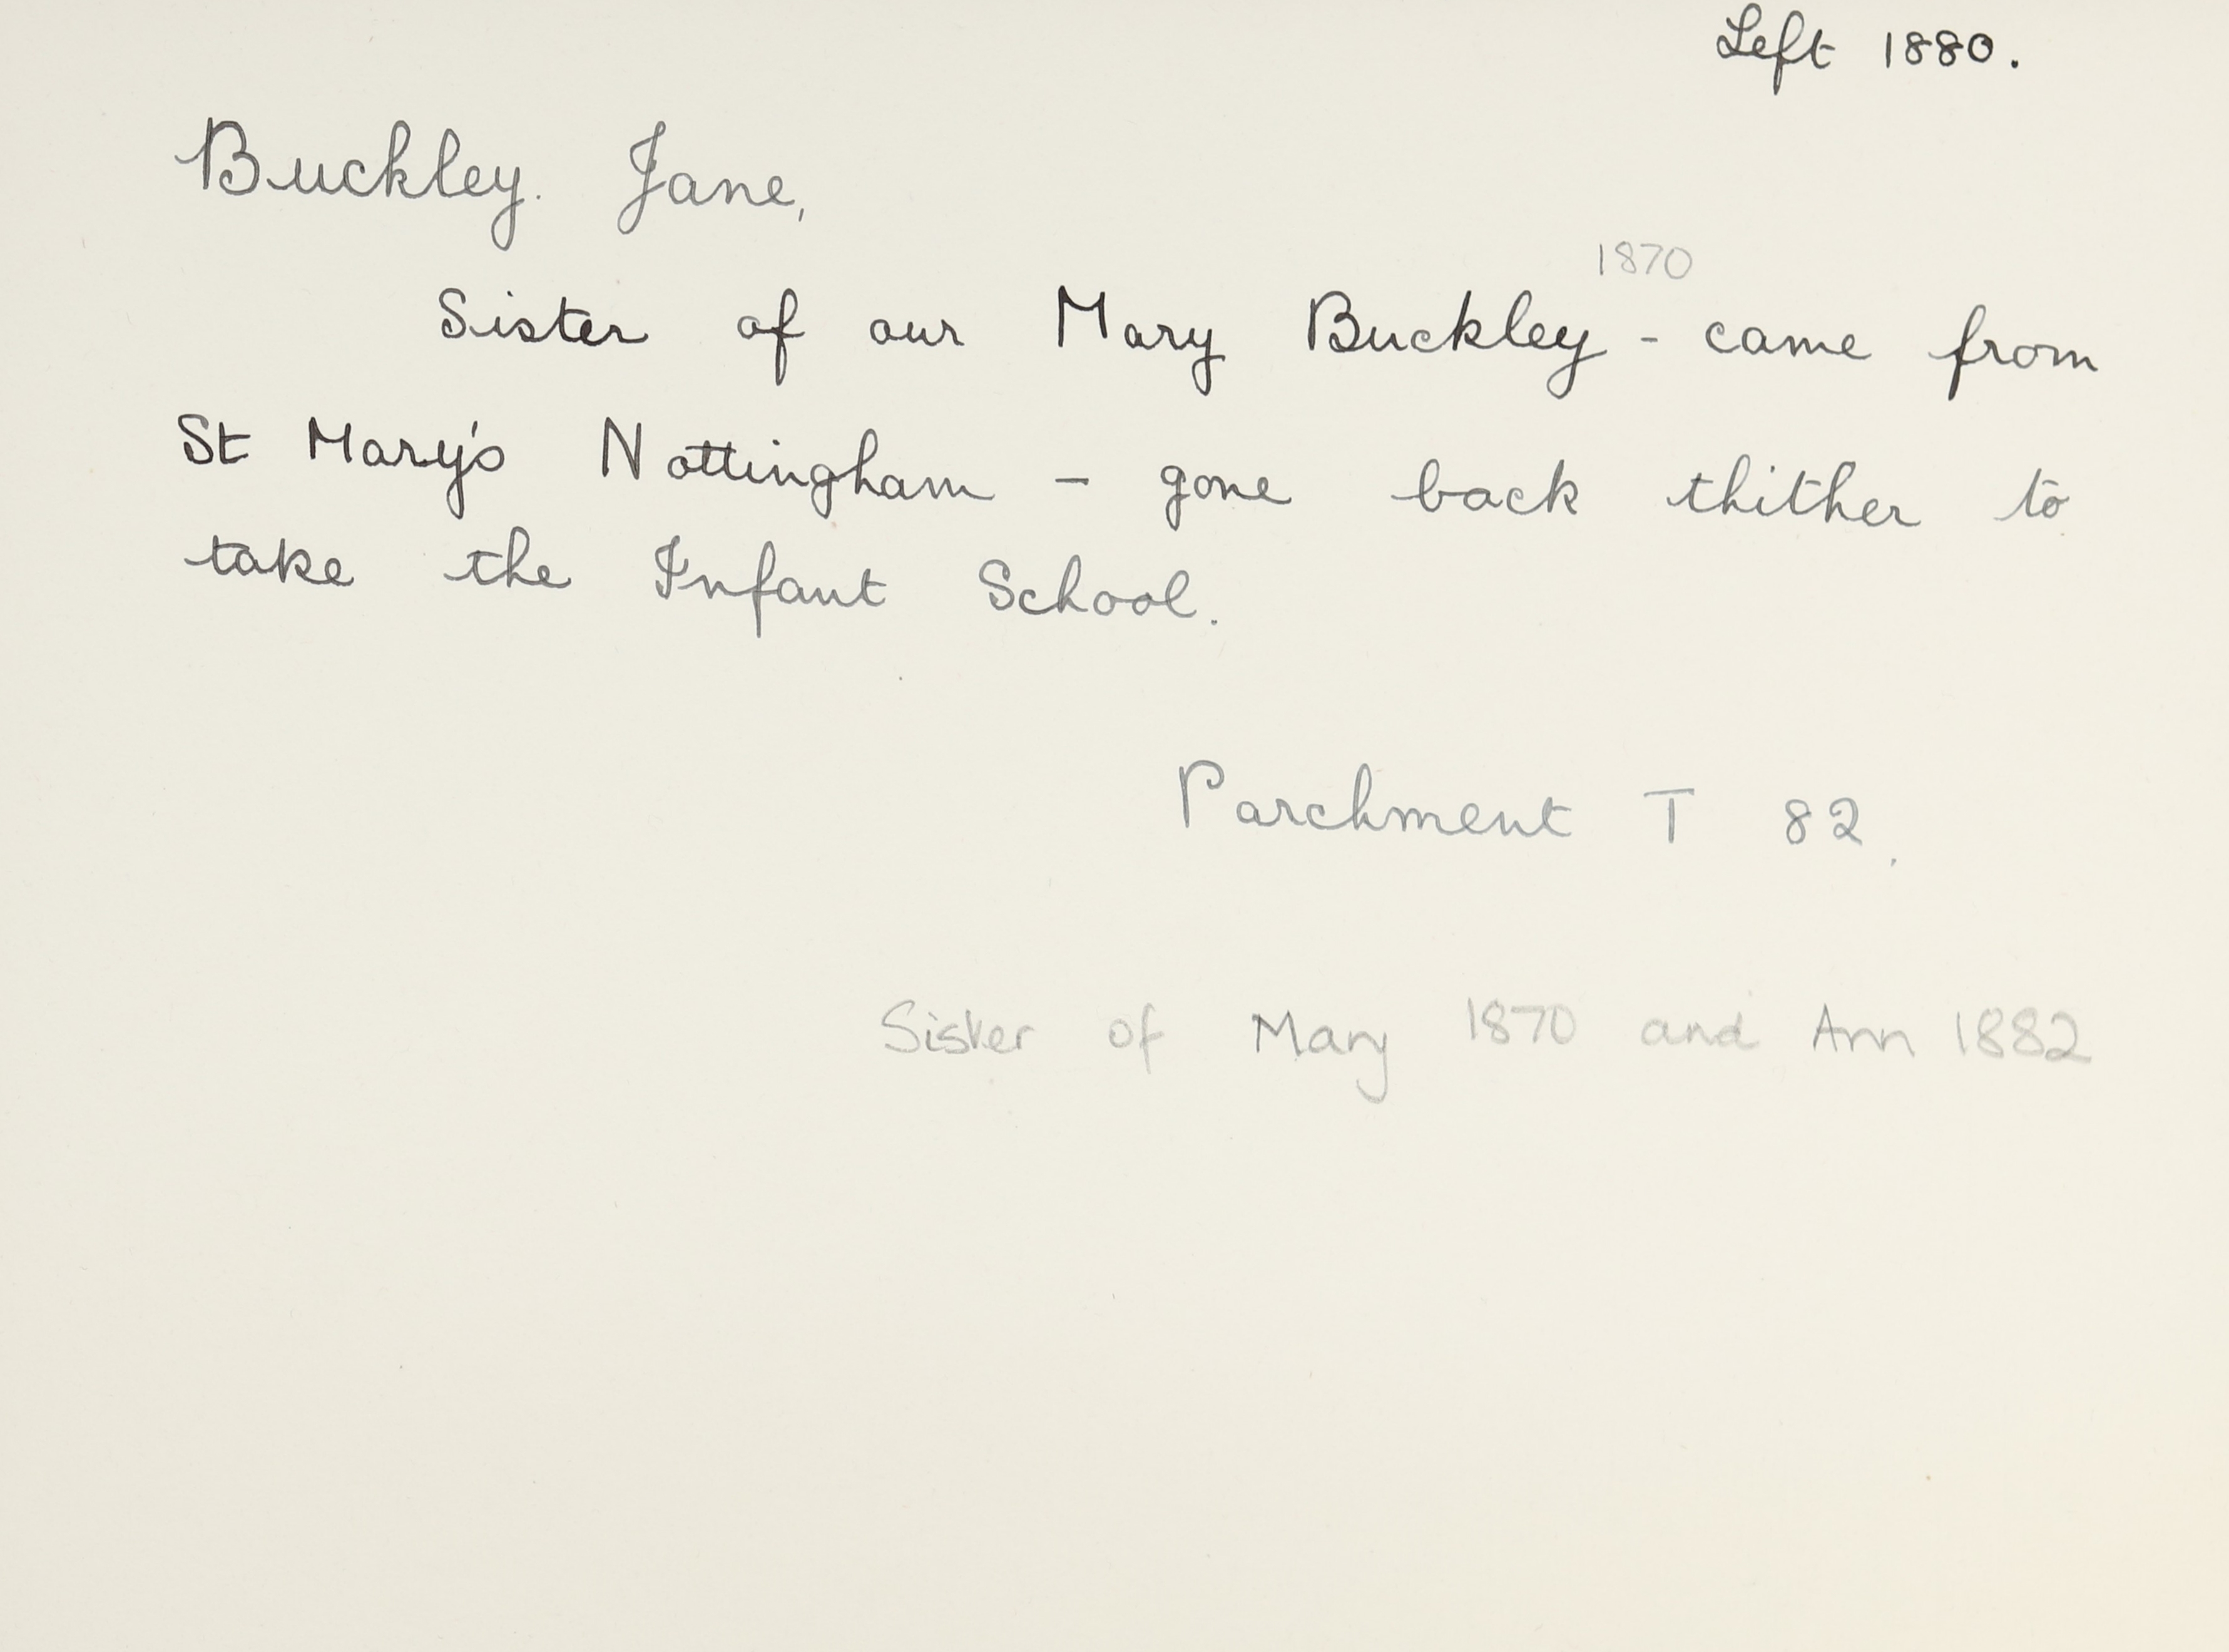 Left 1880.
Buckley. Jane,
1870
Sister of our Mary Buckley - came from
St Mary's Nottingham - gone back thither to
take the Infant School.
Parchment T 82.
Sister of Mary 1870 and Ann 1882